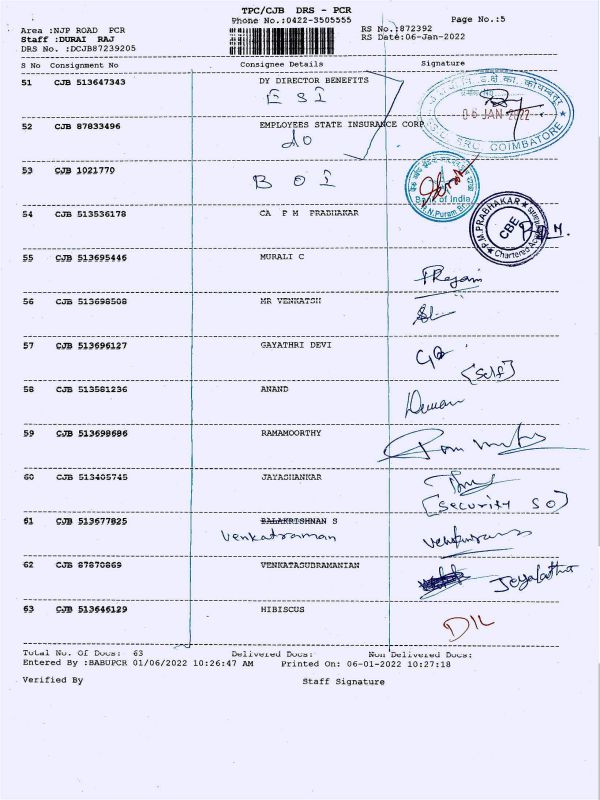 TPC/CJB DRS - PCR
Phone No.:0422-3505555
Page No.:5
Area :NJP ROAD PCR
RS No.:872392
Staff :DURAI RAJ
RS Date:06-Jan-2022
DRS No. :DCJB87239205
S No Consignment No Consignee Details Signature
51 CJB 513647343 DY DIRECTOR BENEFITS
ESI
06 JAN 2022
COIMBATORE
52 CJB 87833496 EMPLOYEES STATE INSURANCE CORP
do
53 CJB 1021770
BOI
Bank of India
R.N.Puram Br.
54 CJB 513536178 CA P M PRADHAKAR
P.M.PRABHAKAR
CBE
Chartered
55 CJB 513695446 MURALI C
56 CJB 513698508 MR VENKATSH
57 CJB 513696127 GAYATHRI DEVI
[Self]
58 CJB 513581236 ANAND
59 CJB 513698686 RAMAMOORTHY
60 CJB 513405745 JAYASHANKAR
[Security SO]
61 CJB 513677825 BALAKRISHNAN S
Venkatraman
62 CJB 87870869 VENKATASUBRAMANIAN
Jeyalatha
63 CJB 513646129 HIBISCUS
DIL
Total No. Of Docs: 63 Delivered Docs: Non Delivered Docs:
Entered By :BABUPCR 01/06/2022 10:26:47 AM Printed On: 06-01-2022 10:27:18
Verified By Staff Signature